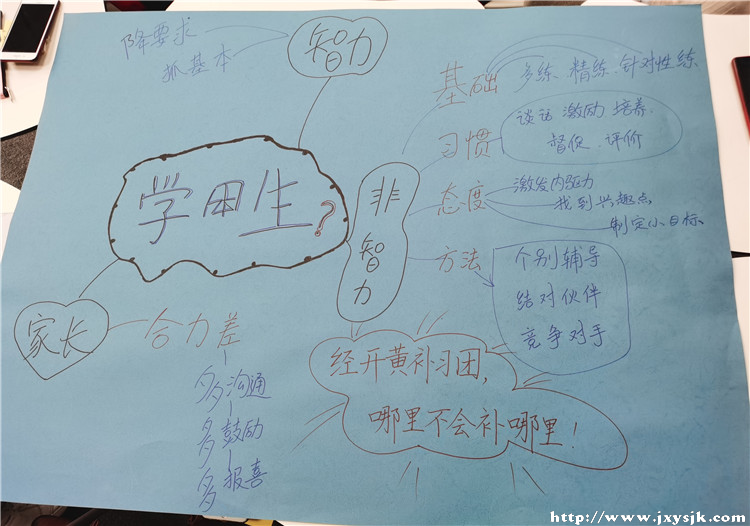 降要求
抓基本
智力
学困生?
非智力
基础
多练、精练、针对性练
习惯
谈话 激励 培养、
督促、评价
态度
激发内驱力
找到兴趣点
制定小目标
方法
个别辅导
结对伙伴
竞争对手
家长
合力差
多沟通
多鼓励
多报喜
经开黄补习团,
哪里不会补哪里!
http://www.jxysjk.com/